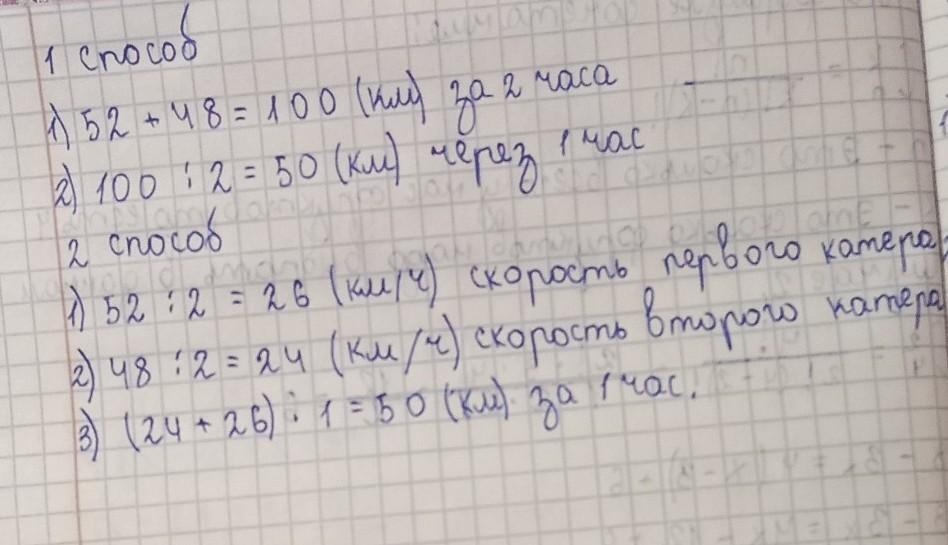 1 способ
1) 52 + 48 = 100 (км) за 2 часа
2) 100 : 2 = 50 (км) через 1 час
2 способ
1) 52 : 2 = 26 (км/ч) скорость первого катера
2) 48 : 2 = 24 (км/ч) скорость второго катера
3) (24 + 26) : 1 = 50 (км) за 1 час.